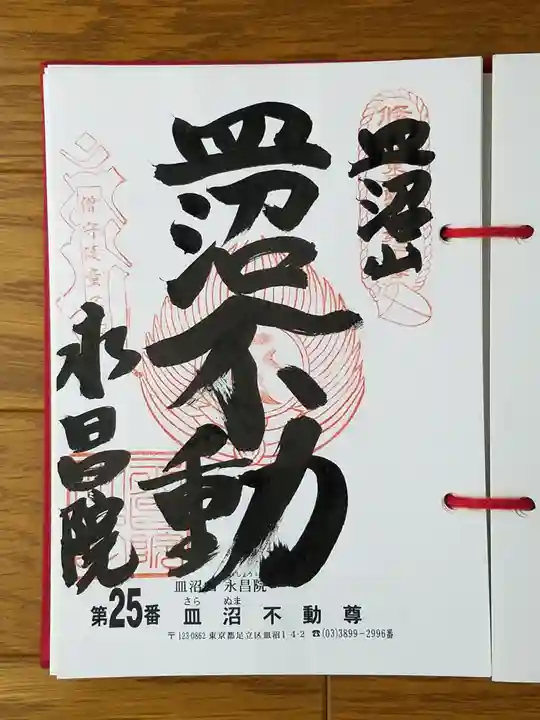 皿沼山
皿沼不動
永昌院
皿沼山 永昌院
さら ぬま
第25番 皿沼不動尊
〒123-0862 東京都足立区皿沼1-4-2 ☎(03)3899-2996番